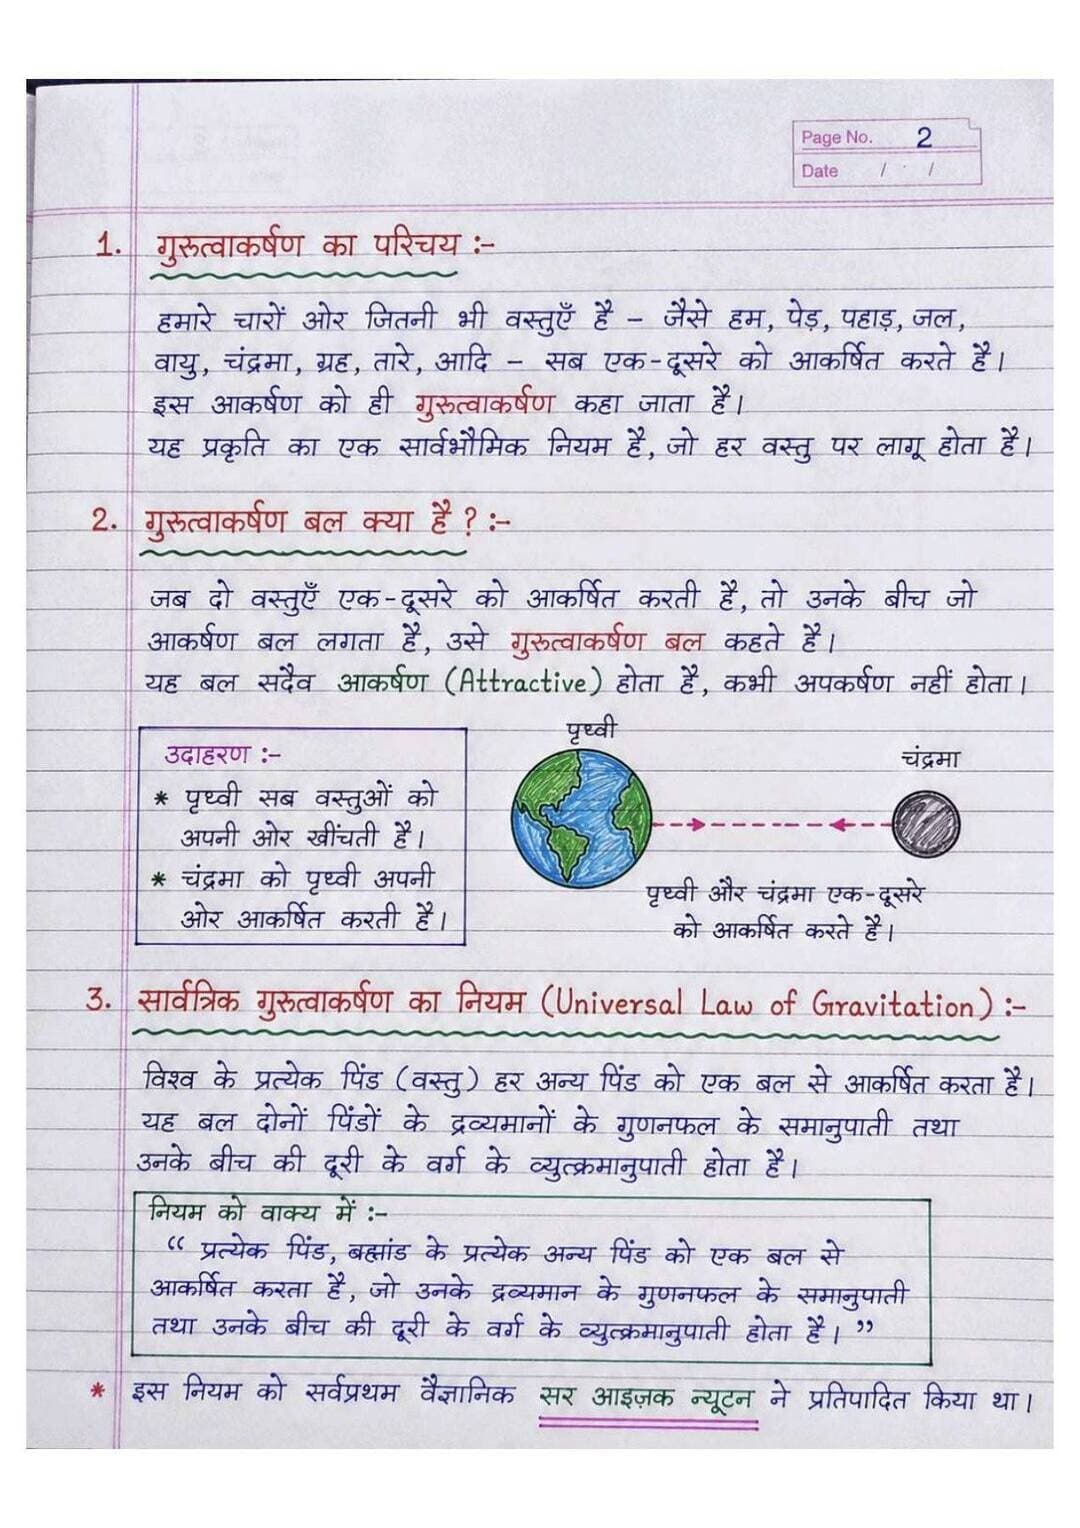 Page No. 2
Date / /
1. गुरुत्वाकर्षण का परिचय :-
हमारे चारों ओर जितनी भी वस्तुएँ है – जैसे हम, पेड़, पहाड़, जल,
वायु, चंद्रमा, ग्रह, तारे, आदि – सब एक-दूसरे को आकर्षित करते है।
इस आकर्षण को ही गुरुत्वाकर्षण कहा जाता है।
यह प्रकृति का एक सार्वभौमिक नियम है, जो हर वस्तु पर लागू होता है।
2. गुरुत्वाकर्षण बल क्या है ? :-
जब दो वस्तुएँ एक-दूसरे को आकर्षित करती है, तो उनके बीच जो
आकर्षण बल लगता है, उसे गुरुत्वाकर्षण बल कहते है।
यह बल सदैव आकर्षण (Attractive) होता है, कभी अपकर्षण नहीं होता।
उदाहरण :-
* पृथ्वी सब वस्तुओं को
अपनी ओर खींचती है।
* चंद्रमा को पृथ्वी अपनी
ओर आकर्षित करती है।
पृथ्वी
चंद्रमा
पृथ्वी और चंद्रमा एक-दूसरे
को आकर्षित करते है।
3. सार्वत्रिक गुरुत्वाकर्षण का नियम (Universal Law of Gravitation) :-
विश्व के प्रत्येक पिंड (वस्तु) हर अन्य पिंड को एक बल से आकर्षित करता है।
यह बल दोनों पिंडों के द्रव्यमानों के गुणनफल के समानुपाती तथा
उनके बीच की दूरी के वर्ग के व्युत्क्रमानुपाती होता है।
नियम को वाक्य में :-
“ प्रत्येक पिंड, ब्रह्मांड के प्रत्येक अन्य पिंड को एक बल से
आकर्षित करता है, जो उनके द्रव्यमान के गुणनफल के समानुपाती
तथा उनके बीच की दूरी के वर्ग के व्युत्क्रमानुपाती होता है। ”
* इस नियम को सर्वप्रथम वैज्ञानिक सर आइज़क न्यूटन ने प्रतिपादित किया था।